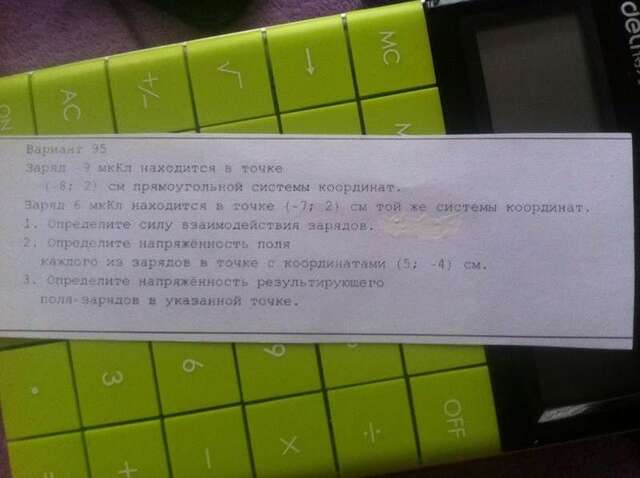 Вариант 95
Заряд -9 мкКл находится в точке
(-8; 2) см прямоугольной системы координат.
Заряд 6 мкКл находится в точке (-7; 2) см той же системы координат.
1. Определите силу взаимодействия зарядов.
2. Определите напряжённость поля
каждого из зарядов в точке с координатами (5; -4) см.
3. Определите напряжённость результирующего
поля зарядов в указанной точке.
ON
AC
+/-
√
→
MC
M
deli
3
6
9
OFF
+
-
×
÷